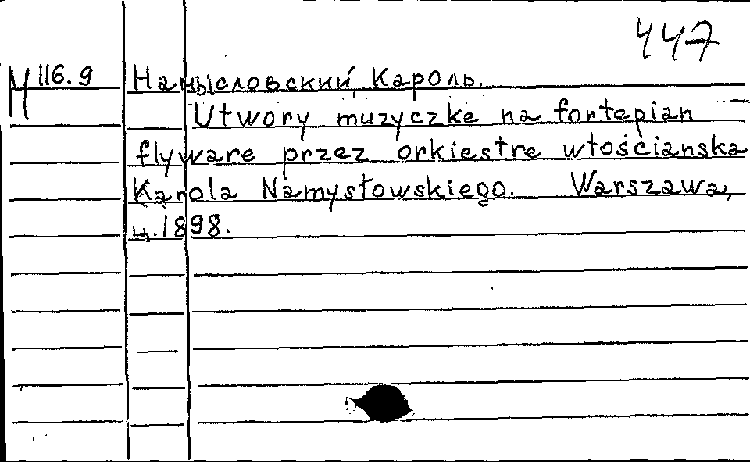 447
М 116.9 Намысловский, Кароль.
Utwory muzyczke na fortepian
flyware przez orkiestre włościańska
Karola Namysłowskiego. Warszawa,
ц.1898.